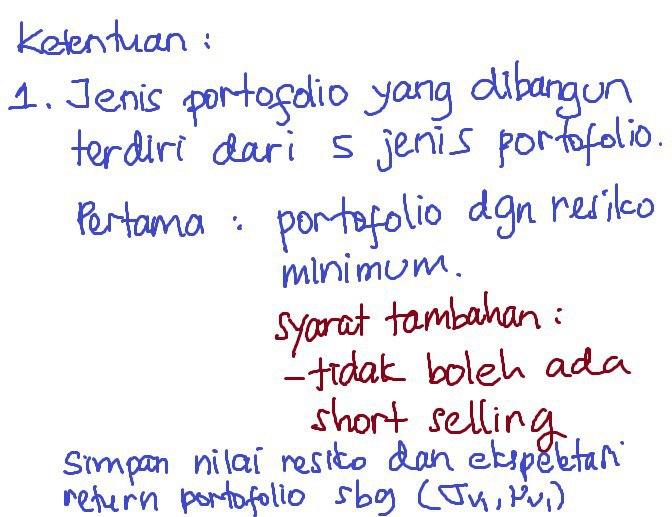 Ketentuan :
1. Jenis portofolio yang dibangun
terdiri dari 5 jenis portofolio.
Pertama : portofolio dgn resiko
minimum.
syarat tambahan :
- tidak boleh ada
short selling
Simpan nilai resiko dan ekspektasi
return portofolio sbg (σv₁, μv₁)